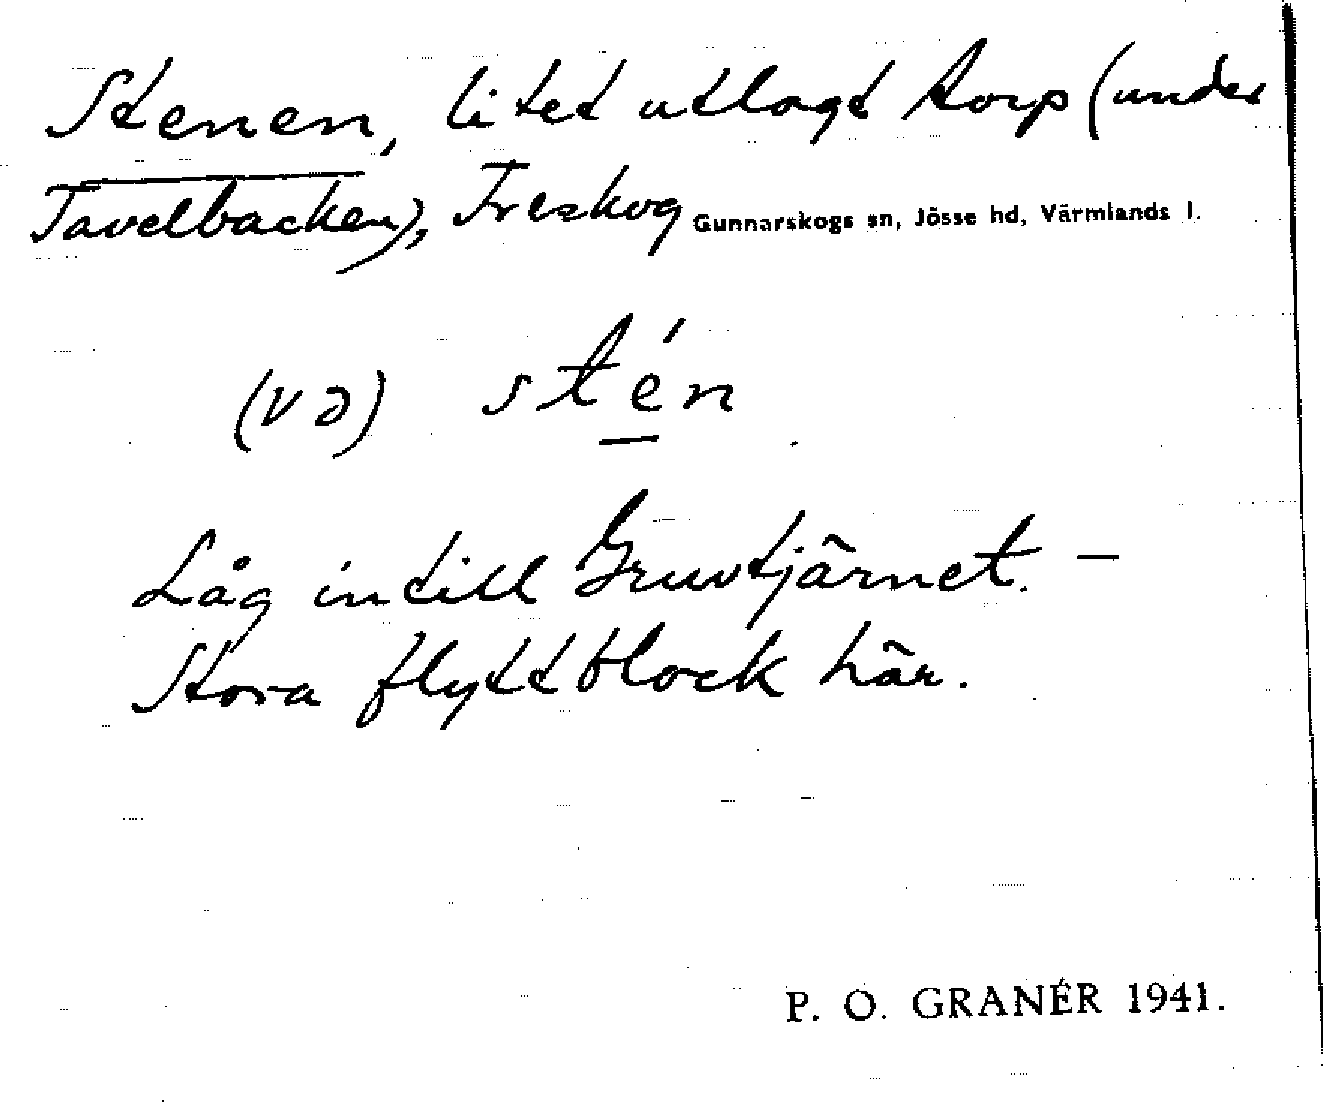 Stenen, litet utlagt torp (under
Tavelbacken), Treskog Gunnarskogs sn, Jösse hd, Värmlands l.
(və) stén
Låg intill Gruvtjärnet. –
Stora flyttblock här.
P. O. GRANÉR 1941.